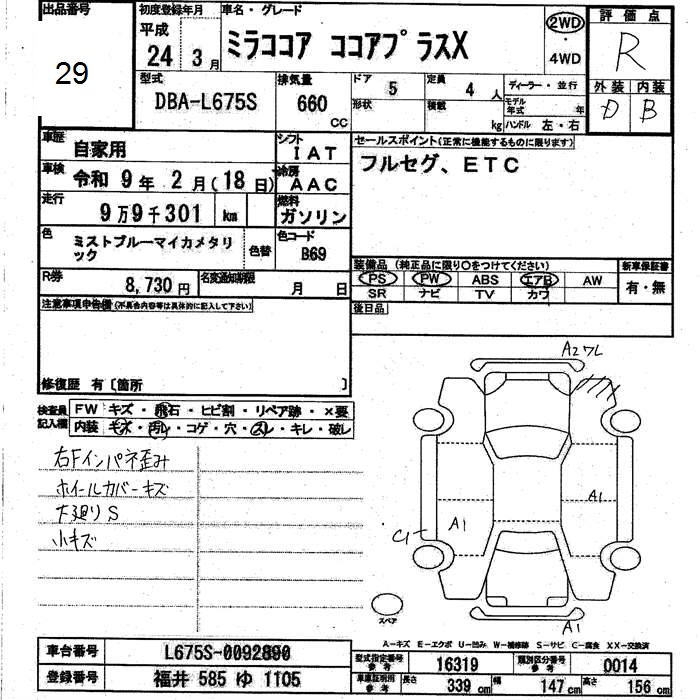 出品番号 初度登録年月 車名・グレード 評価点
29 平成 24 3月 ミラココア ココアプラスX 2WD・4WD R
型式 DBA-L675S 排気量 660 CC ドア 5 定員 4 人 ディーラー・並行 外装 内装
形状 積載 kg モデル年式 年 ハンドル 左・右 D B
車歴 自家用 シフト IAT セールスポイント(正常に機能するものに限ります)
車検 令和 9年 2月(18日) 冷房 AAC フルセグ、ETC
走行 9万9千301 km 燃料 ガソリン
色 ミストブルーマイカメタリック 色替 色コード B69
装備品(純正品に限り○をつけてください) 新車保証書
R券 8,730円 名変通知期限 月 日 PS PW ABS エアB AW 有・無
SR ナビ TV カワ
注意事項申告欄(不具合内容等は具体的に記入して下さい) 後日品
修復歴 有〔箇所 〕
検査員記入欄 FW キズ・飛石・ヒビ割・リペア跡・×要
内装 キズ・汚レ・コゲ・穴・スレ・キレ・破レ
右Fインパネ歪み
ホイールカバーキズ
下廻りS
小キズ
A2ワレ
A1
A1
C1
A1
スペア
A-キズ E-エクボ U-凹み W-補修跡 S-サビ C-腐食 XX-交換済
車台番号 L675S-0092890 型式指定番号 参考 16319 類別区分番号 参考 0014
登録番号 福井 585 ゆ 1105 車庫証明用 参考 長さ 339 cm 幅 147 cm 高さ 156 cm